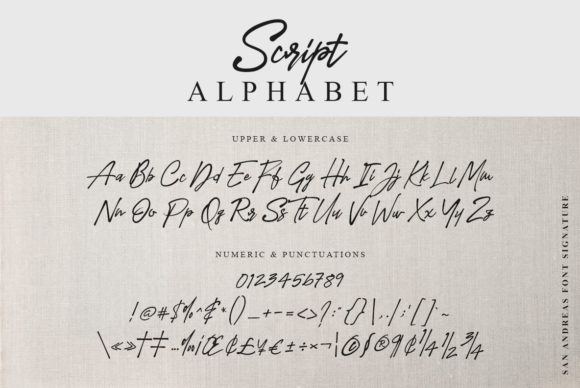 Script
ALPHABET
UPPER & LOWERCASE
Aa Bb Cc Dd Ee Ff Gg Hh Ii Jj Kk Ll Mm
Nn Oo Pp Qq Rr Ss Tt Uu Vv Ww Xx Yy Zz
NUMERIC & PUNCTUATIONS
0123456789
!@#$%^&*()_+-=<>?:"{}|,./;'[]~
\«»†‡…‰¡Œ¢£¥€±÷×¬¦©§®¶¢¼½¾
SAN ANDREAS FONT SIGNATURE